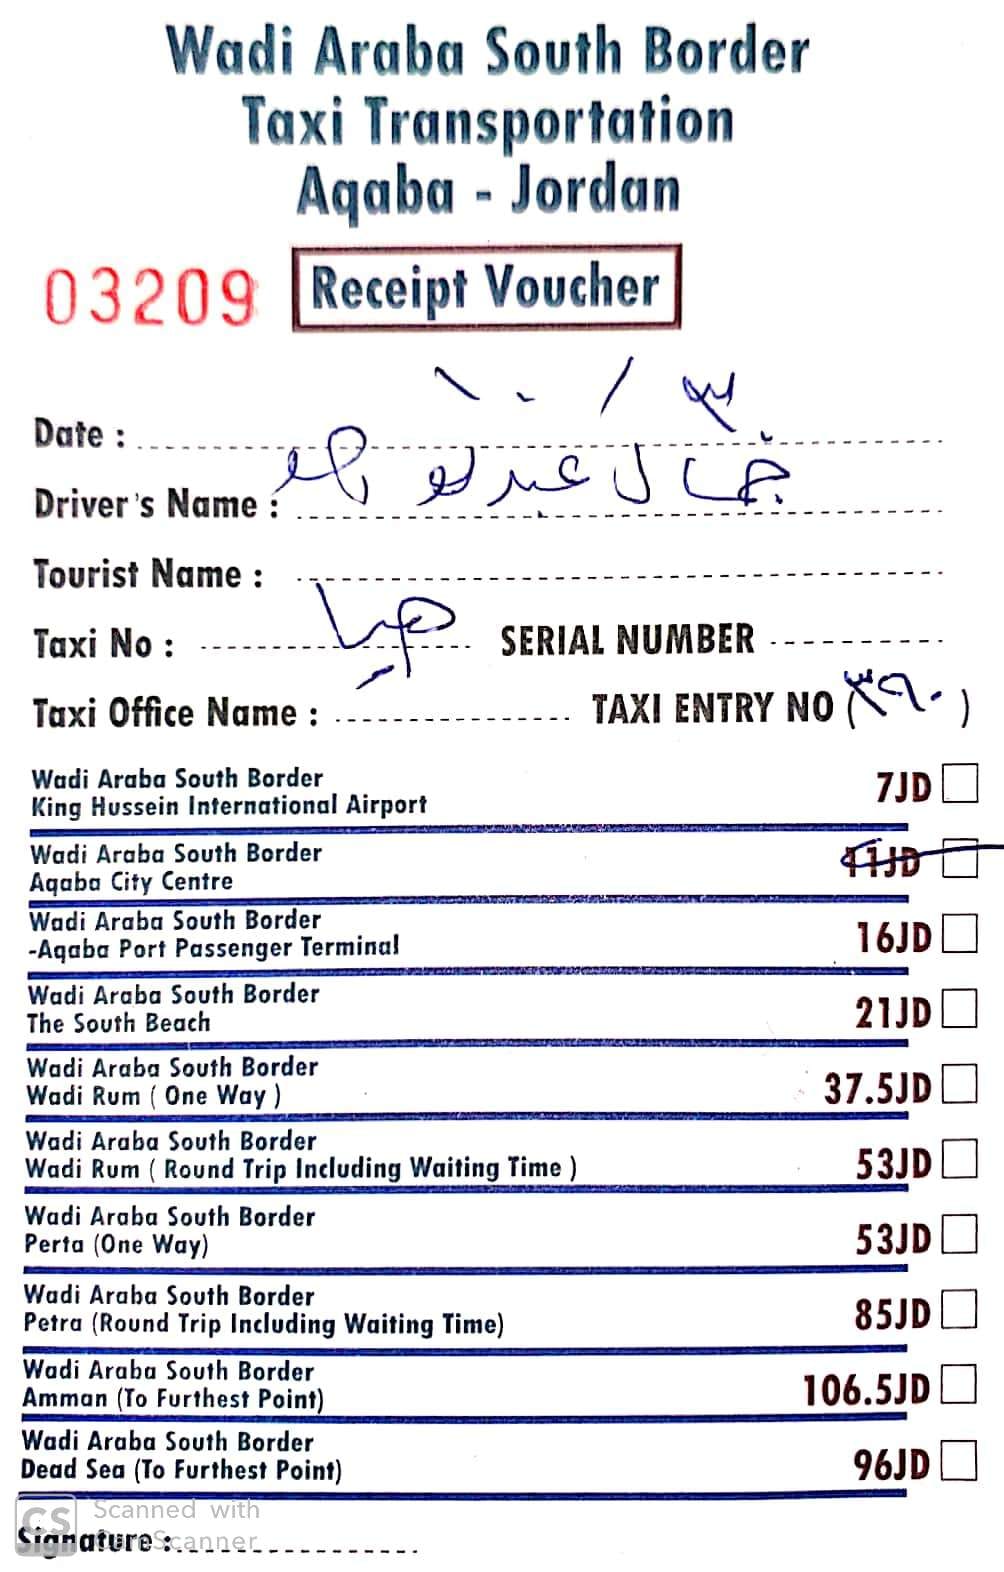 Wadi Araba South Border
Taxi Transportation
Aqaba - Jordan
03209 Receipt Voucher
Date : ١٠ / ٣
Driver's Name : جمال عبد
Tourist Name :
Taxi No : SERIAL NUMBER
Taxi Office Name : TAXI ENTRY NO (٣٩٠)
Wadi Araba South Border
King Hussein International Airport 7JD
Wadi Araba South Border
Aqaba City Centre 11JD
Wadi Araba South Border
-Aqaba Port Passenger Terminal 16JD
Wadi Araba South Border
The South Beach 21JD
Wadi Araba South Border
Wadi Rum ( One Way ) 37.5JD
Wadi Araba South Border
Wadi Rum ( Round Trip Including Waiting Time ) 53JD
Wadi Araba South Border
Perta (One Way) 53JD
Wadi Araba South Border
Petra (Round Trip Including Waiting Time) 85JD
Wadi Araba South Border
Amman (To Furthest Point) 106.5JD
Wadi Araba South Border
Dead Sea (To Furthest Point) 96JD
Signature :
CS Scanned with
CamScanner